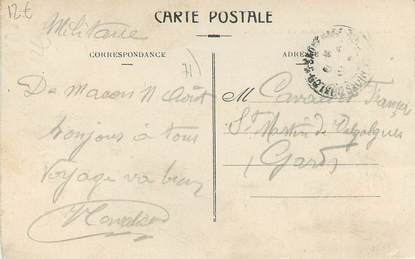 12 €
Militaire
CARTE POSTALE
CORRESPONDANCE
ADRESSE
71)
De Macon 11 Août
Bonjours à tous
Voyage va bien
M Cavalier François
St Martin de Valgalgues
(Gard)